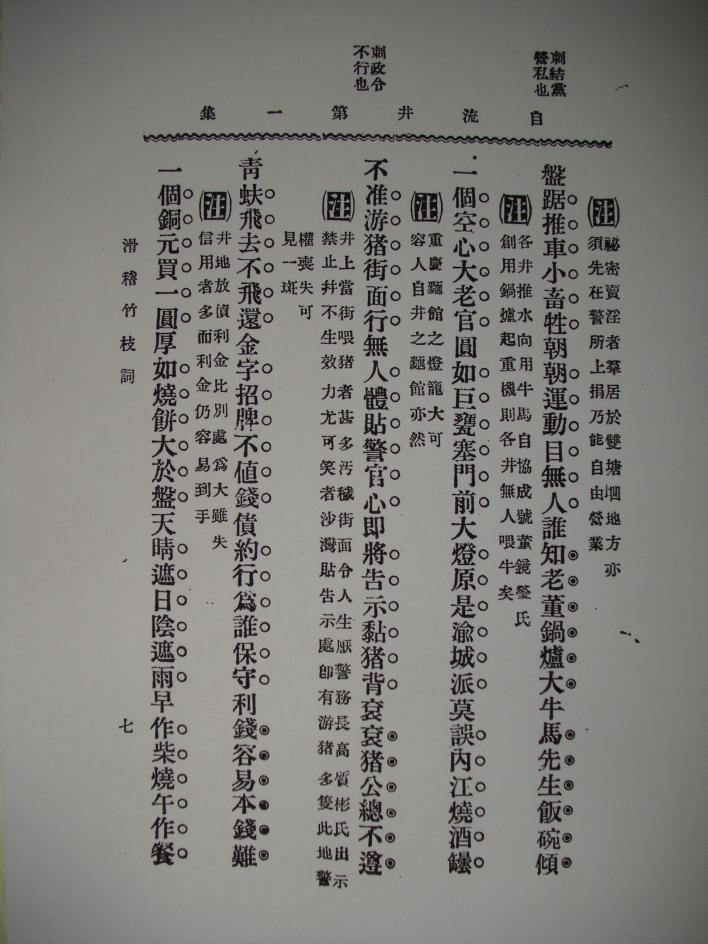 刺結黨
營私也
刺政令
不行也
自流井第一集
注
祕密賣淫者羣居於雙塘堌地方亦
須先在警所上捐乃能自由營業
盤踞推車小畜牲朝朝運動目無人誰知老董鍋爐大牛馬先生飯碗傾
注
各井推水向用牛馬自協成號董鏡瑩氏
創用鍋爐起重機則各井無人喂牛矣
一個空心大老官圓如巨甕塞門前大燈原是渝城派莫誤內江燒酒罎
注
重慶麵館之燈籠大可
容人自井之麵館亦然
不准游猪街面行無人體貼警官心即將告示黏猪背袞袞猪公總不遵
注
井上當街喂猪者甚多汚穢街面令人生厭警務長高質彬氏出示
禁止并不生效力尤可笑者沙灣貼告示處卽有游猪多隻此地警
權喪失可
見一斑
靑蚨飛去不飛還金字招牌不值錢債約行爲誰保守利錢容易本錢難
注
井地放債利金比別處爲大雖失
信用者多而利金仍容易到手
一個銅元買一圓厚如燒餅大於盤天晴遮日陰遮雨早作柴燒午作餐
滑稽竹枝詞
七